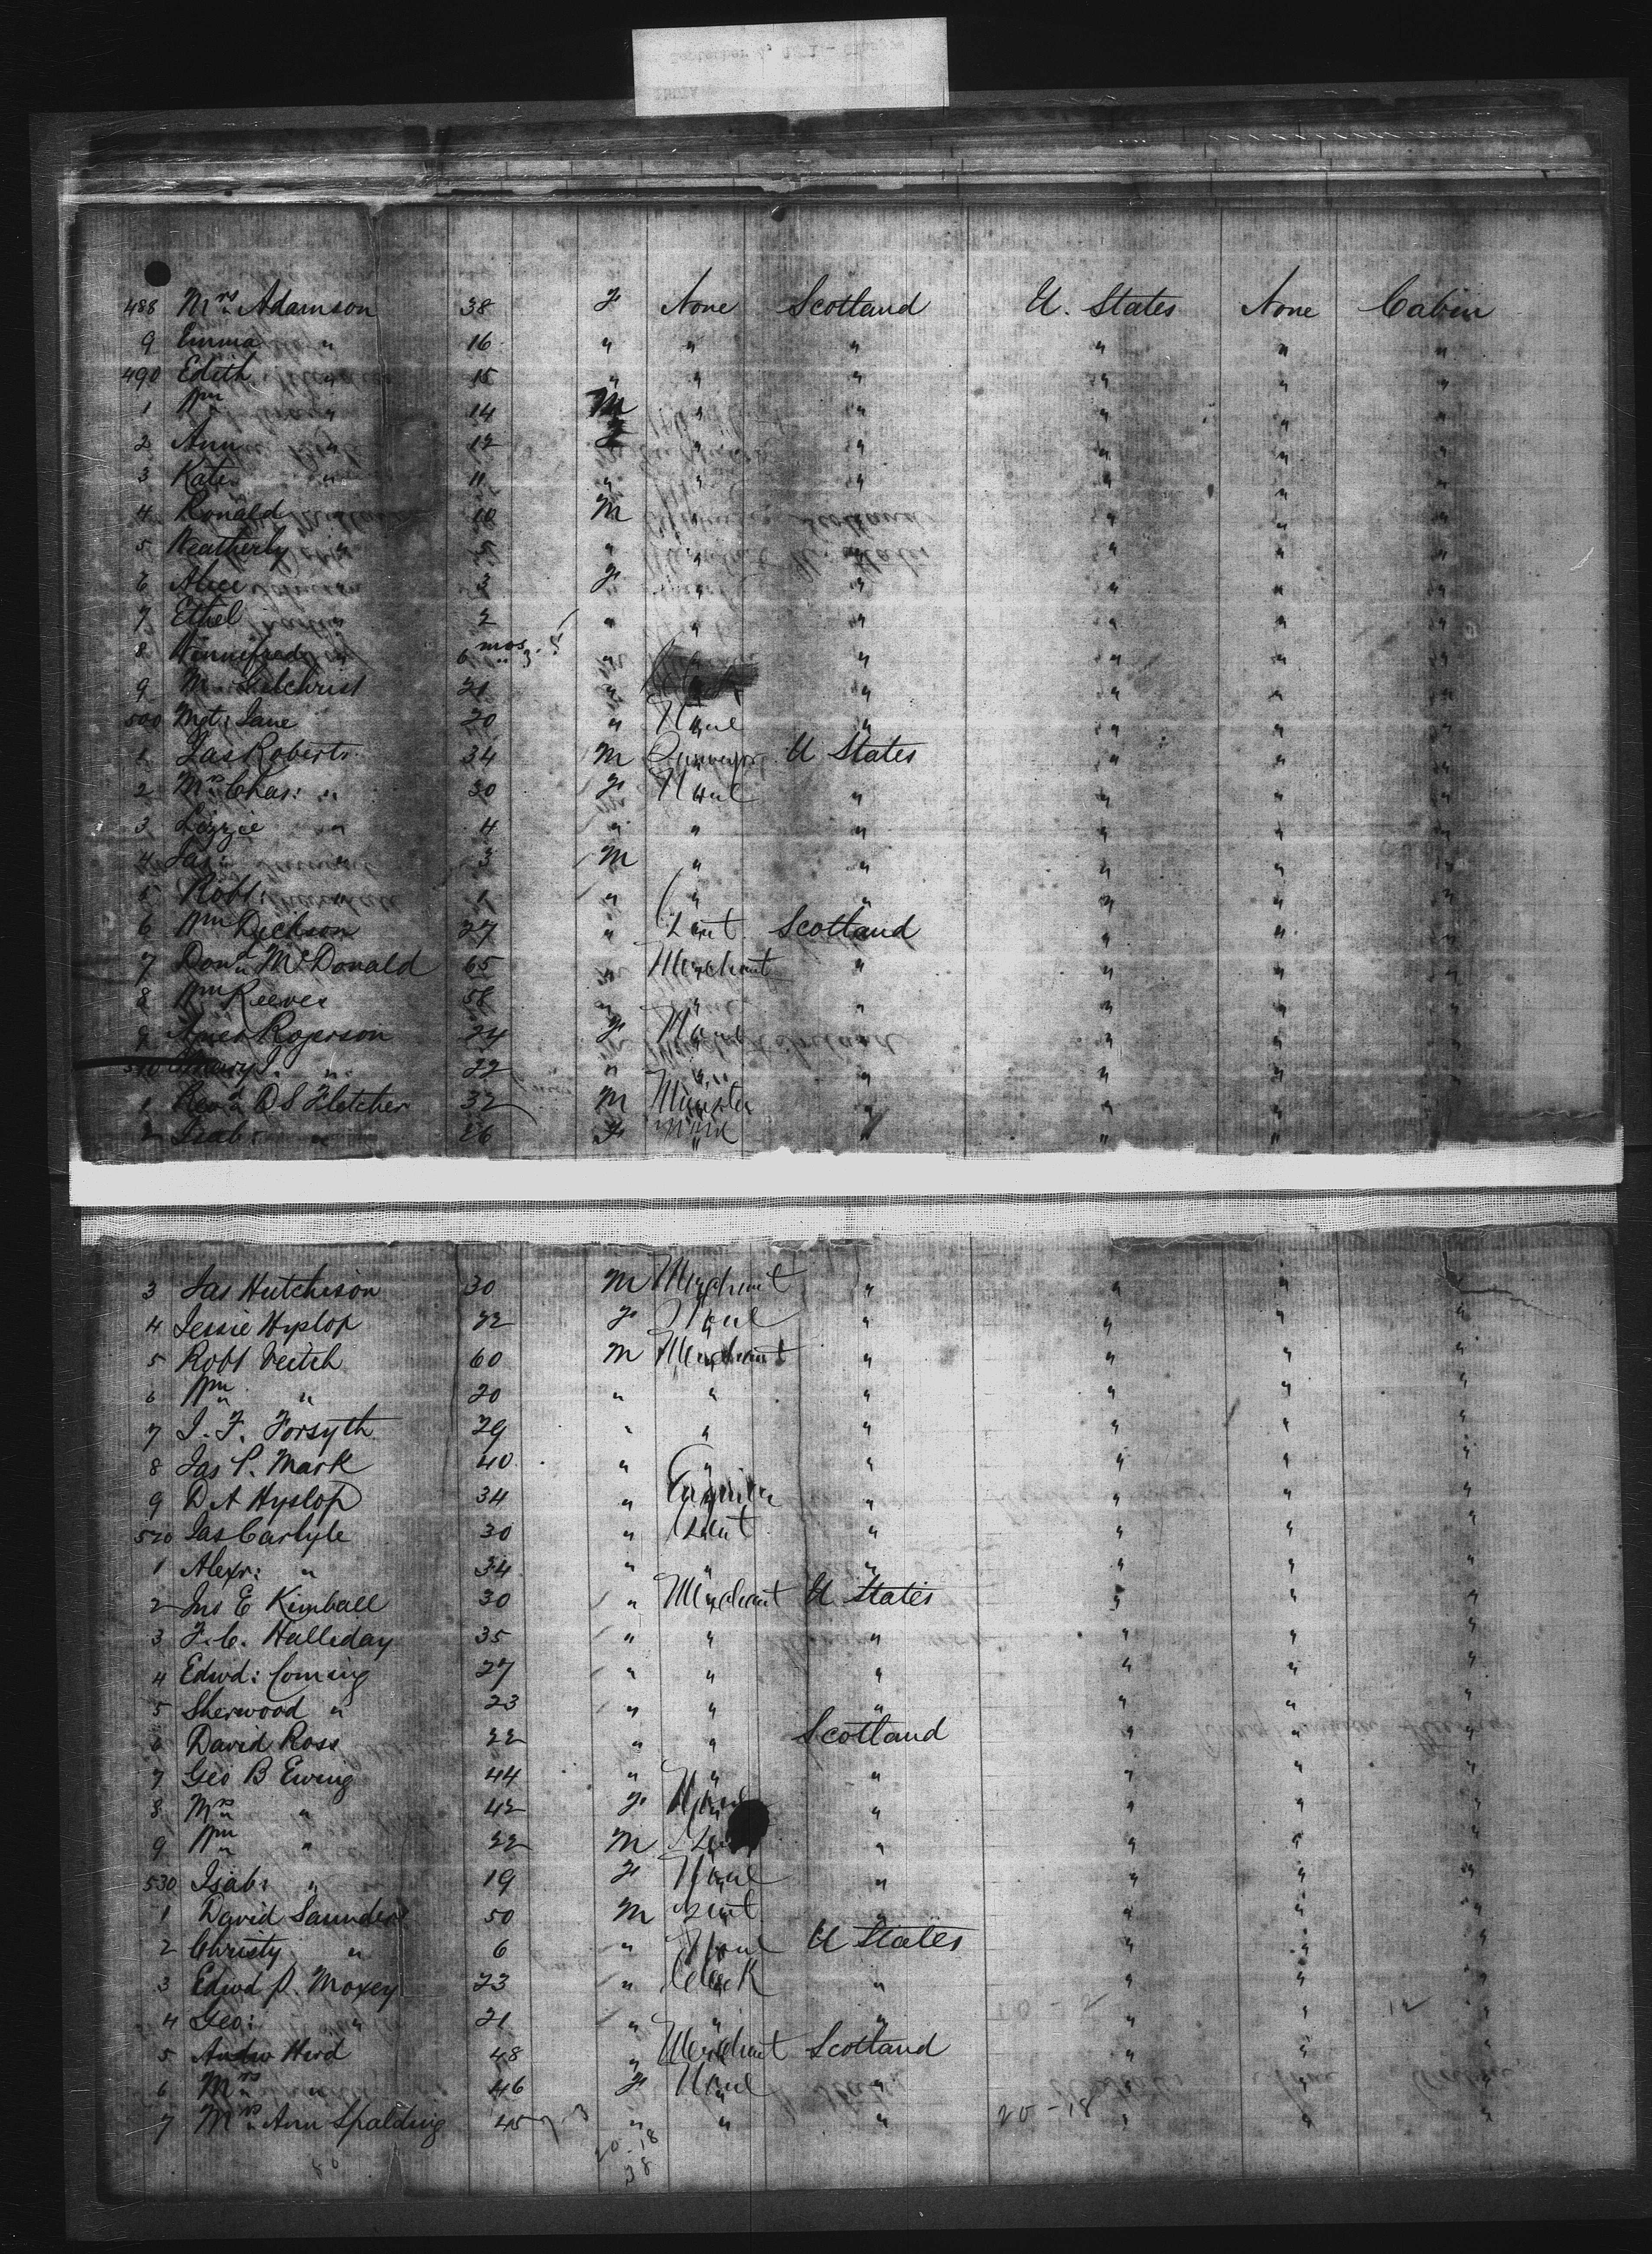 488 Mrs Adamson 38 F None Scotland U. States None Cabin
9 Emma " 16 " " " " " "
490 Edith " 15 " " " " " "
1 Wm " 14 M " " " " "
2 Ann " 12 F " " " " "
3 Kate " 11 " " " " " "
4 Ronald " 10 M " " " " "
5 Weatherly " 5 " " " " " "
6 Alice " 3 F " " " " "
7 Ethel " 2 " " " " " "
8 Winnifred " 6 mos " " " " " "
9 M Gilchrist 21 " " " " "
500 Mgt: Jane 20 " None " " " "
1 Jas Roberts 34 M U States " " "
2 Mrs Chas: " 30 F None " " " "
3 Lizzie " 4 " " " " " "
4 Jas: " 3 M " " " " "
5 Robt: " 1 " " " " " "
6 Wm Dickson 27 " Scotland " " "
7 Dond McDonald 65 " Merchant " " " "
8 Wm Reeves 58 " " " " " "
9 Agnes Rogerson 24 F None " " " "
510 Mary J. " 22 " " " " " "
1 Revd D S Fletcher 32 M Minister " " " "
2 Isab: " 26 F None " " "
3 Jas Hutchison 30 M Merchant " " "
4 Jessie Hyslop 22 F None " " " "
5 Robt Veitch 60 M Merchant " " " "
6 Wm " 20 " " " " " "
7 J. F. Forsyth 29 " " " " " "
8 Jas P. Mark 40 " " " " " "
9 D A Hyslop 34 " Engineer " " " "
520 Jas Carlyle 30 " " " " "
1 Alexr: " 34 " " " " " "
2 Jno E Kimball 30 " Merchant U States " " "
3 F. C. Halliday 35 " " " " " "
4 Edwd: Coming 27 " " " " " "
5 Sherwood " 23 " " " " " "
6 David Ross 22 " " Scotland " " "
7 Geo B Ewing 44 " " " " " "
8 Mrs " 42 F None " " " "
9 Wm " 22 M " " " "
530 Isab: " 19 F None " " " "
1 David Saunders 50 M " " " "
2 Christy " 6 " None U States " " "
3 Edwd P. Moxey 23 " Clerk " " " "
4 Geo: " 21 " " " " " "
5 Andw Herd 48 " Merchant Scotland " " "
6 Mrs " 46 F None " " " "
7 Mrs Ann Spalding 45 " " " 20-18 " " "
20-18
38